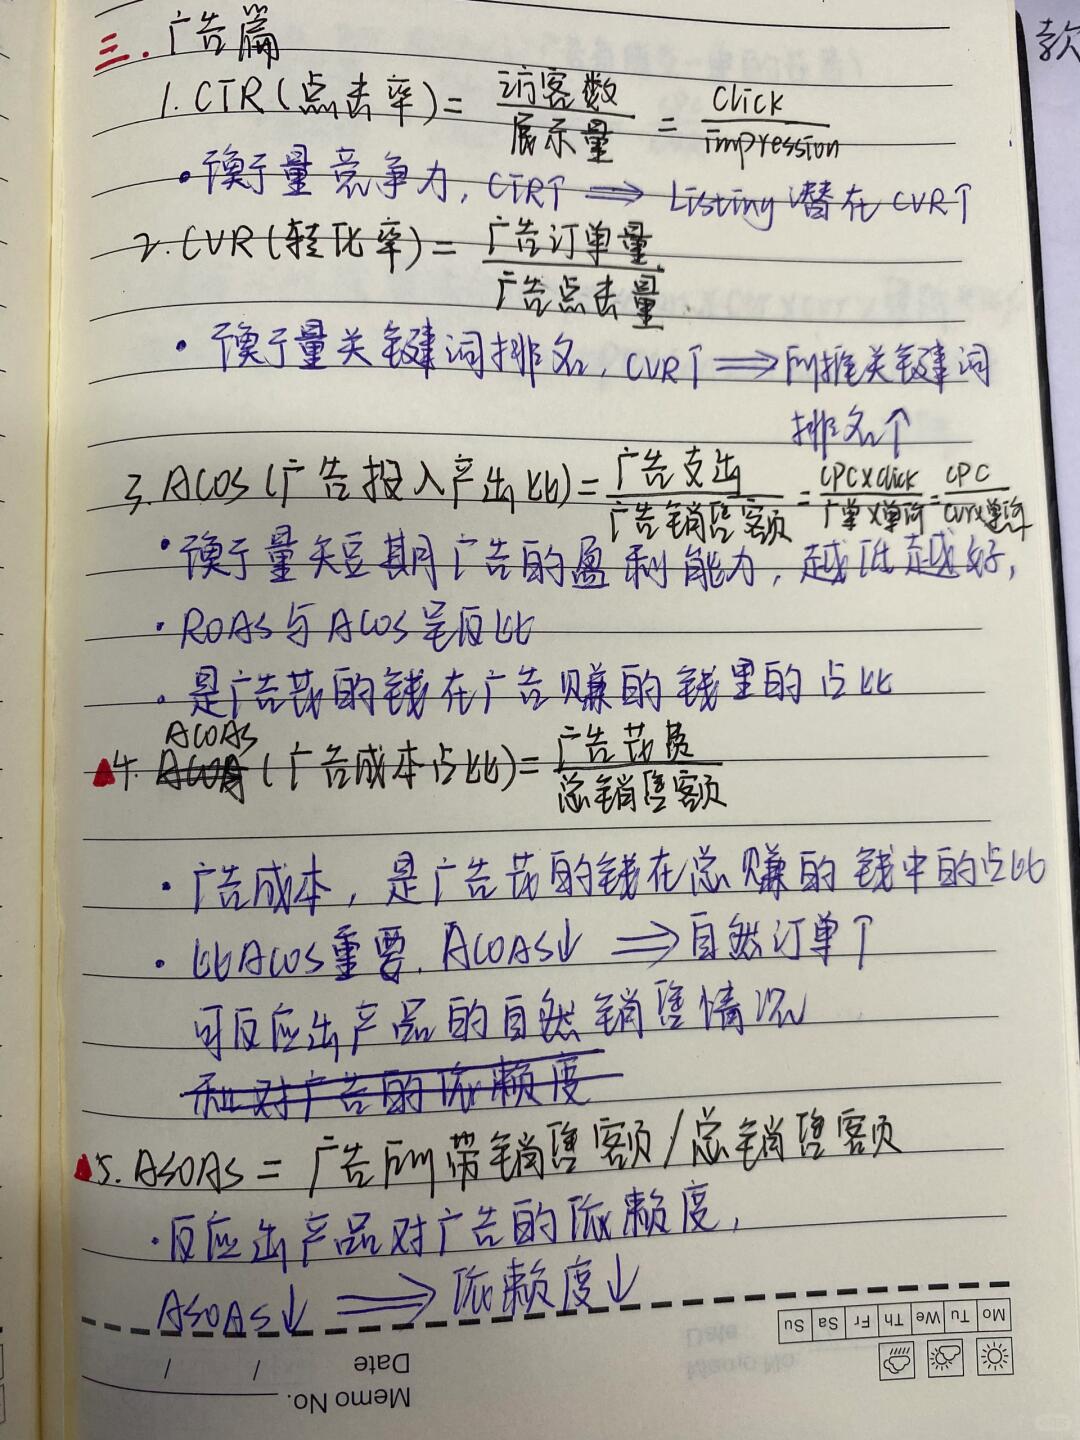 三. 广告篇
1. CTR(点击率) = 访客数/展示量 = Click/impression
• 衡量竞争力, CTR↑ ⟹ Listing 潜在 CVR↑
2. CVR(转化率) = 广告订单量/广告点击量
• 衡量关键词排名, CVR↑ ⟹ 所推关键词
排名↑
3. ACOS (广告投入产出比) = 广告支出/广告销售额 = CPC×Click/广单×单价 = CPC/CVR×单价
• 衡量短期广告的盈利能力, 越低越好,
• ROAS与ACOS呈反比
• 是广告花的钱在广告赚的钱里的占比
ACOAS
▲4. (广告成本占比) = 广告花费/总销售额
• 广告成本, 是广告花的钱在总赚的钱中的占比
• 比ACOS重要. ACOAS↓ ⟹ 自然订单↑
可反应出产品的自然销售情况
和对广告的依赖度
▲5. ASOAS = 广告所带销售额/总销售额
• 反应出产品对广告的依赖度,
ASOAS↓ ⟹ 依赖度↓
Mo Tu We Th Fr Sa Su
Memo No.
Date / /
款